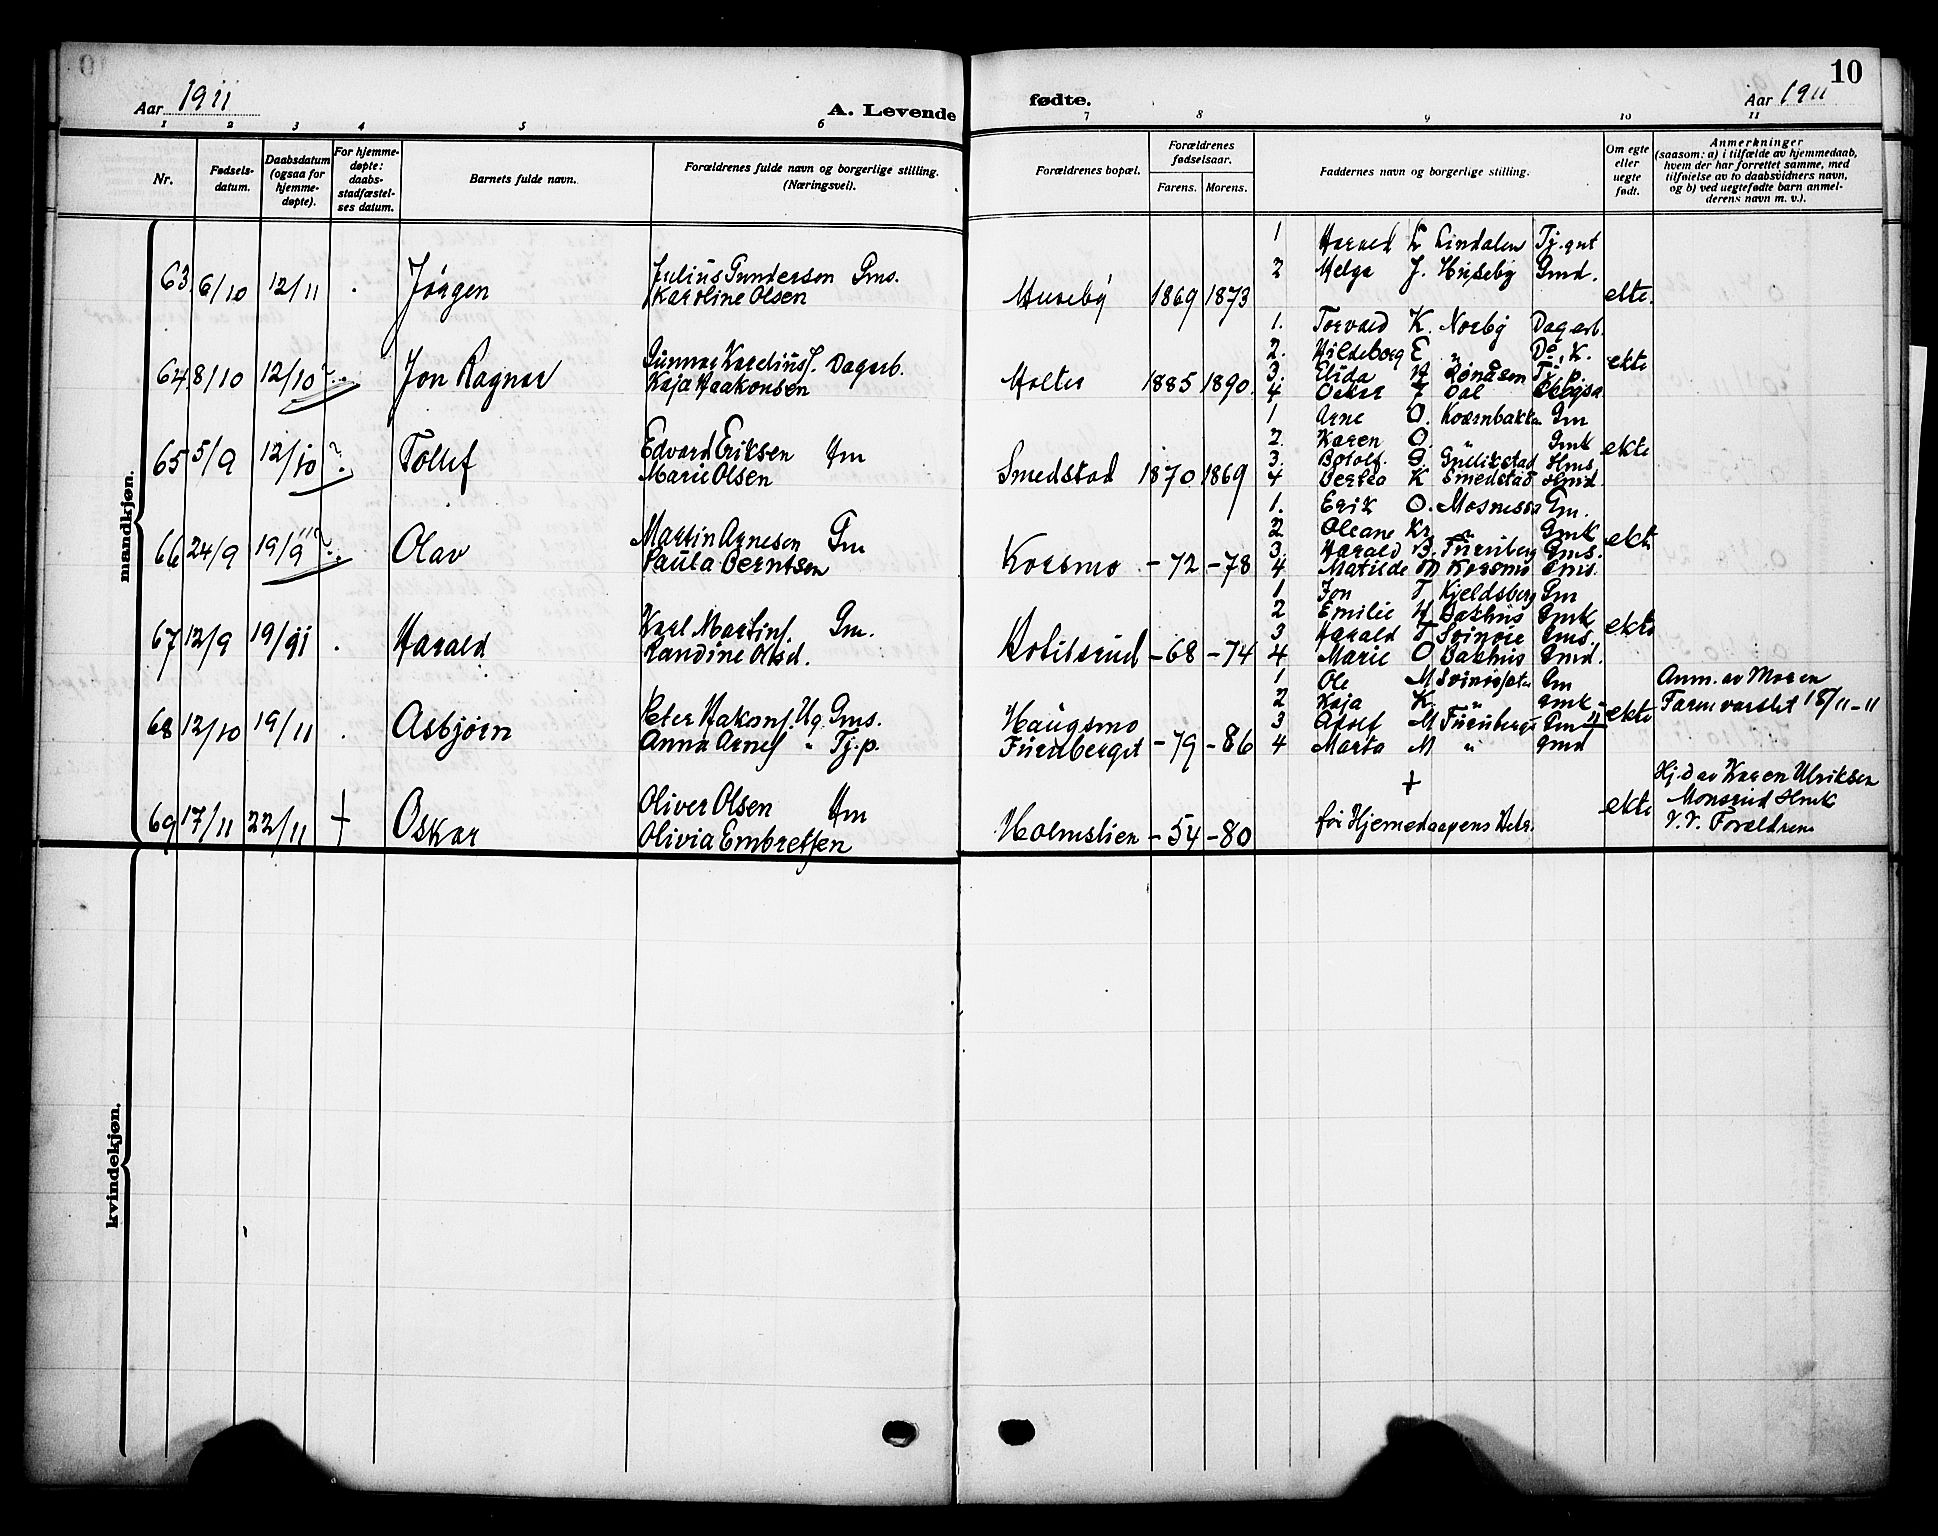 10
Aar 1911
A. Levende
fødte.
Aar 1911
1 2 3 4 5 6 7 8 9 10 11
Nr.
Fødsels-
datum.
Daabsdatum
(ogsaa for
hjemme-
døpte).
For hjemme-
døpte:
daabs-
stadfæstel-
ses datum.
Barnets fulde navn.
Forældrenes fulde navn og borgerlige stilling.
(Næringsvei).
Forældrenes bopæl.
Forældrenes
fødselsaar.
Farens. Morens.
Faddernes navn og borgerlige stilling.
Om egte
eller
uegte
født.
Anmerkninger
(saasom: a) i tilfælde av hjemmedaab,
hvem der har forrettet samme, med
tilføielse av to daabsvidners navn,
og b) ved uegtefødte barn anmel-
derens navn m. v.).
mandkjøn.
63 6/10 12/11 . Jørgen
Julius Gundersen Gms.
Karoline Olsen
Huseby 1869 1873
1 Harald L Lindalen Tj.gut
2 Helga J. Huseby Gmd.
ekte.
64 8/10 12/10 ? Jon Ragnar
Gunnar Kareliusf. Dagarb.
Kaja Haakonsen
Holter 1885 1890.
1. Torvald K. Norby Dagarb.
2. Hildeborg E „ Do, K.
3. Elida H Rønåsen Tj.p.
4 Oskar F Dal
ekte
65 5/9 12/10 ? Tollef
Edvard Eriksen Hm
Marie Olsen
Smedstad 1870 1869
1 Arne O. Kværnbakken Gm
2. Karen O. „ Gmk
3. Botolf G Gulikstad Hms
4 Bertha K Smedstad Hmd.
ekte
66 24/9 19/9 11? Olav
Martin Arnesen Gm
Paula Berntsen
Korsmo -72 -78
1. Erik O. Mosnessa Gm.
2 Oleane Kr. „ Gmk
3. Harald B. Furuberg Gms.
4 Matilde M Korsmo Gmd.
ekte
67 12/9 19/11 . Harald
Karl Martinf. Gm.
Randine Olsd.
Kotilsrud -68 -74
1 Jon T Kjeldsberg Gm
2 Emilie H Bakhus Gmk
3 Harald T Svinoie Gms.
4 Marie O Bakhus Gmd.
ekte
68 12/10 19/11 . Asbjørn
Peter Hakonf. Ug. Gms.
Anna Arnef „ Tj.p.
Haugsmo
Furuberget -79 -86
1 Ole M Gm
2 Kaja K. „ Gmk
3 Adolf M Furuberget Gm
4 Marta M „ Gmd
ekte
Anm. av Moren
Faren varslet 18/11-11
69 17/11 22/11 + Oskar
Oliver Olsen Hm
Olivia Embretsen
Holmslien -54 -80
+
før Hjemedaapens
ekte
Hj.d av Karen Ulriksen
Monsrud Hmk
V.V. Forældrene
kvindekjøn.